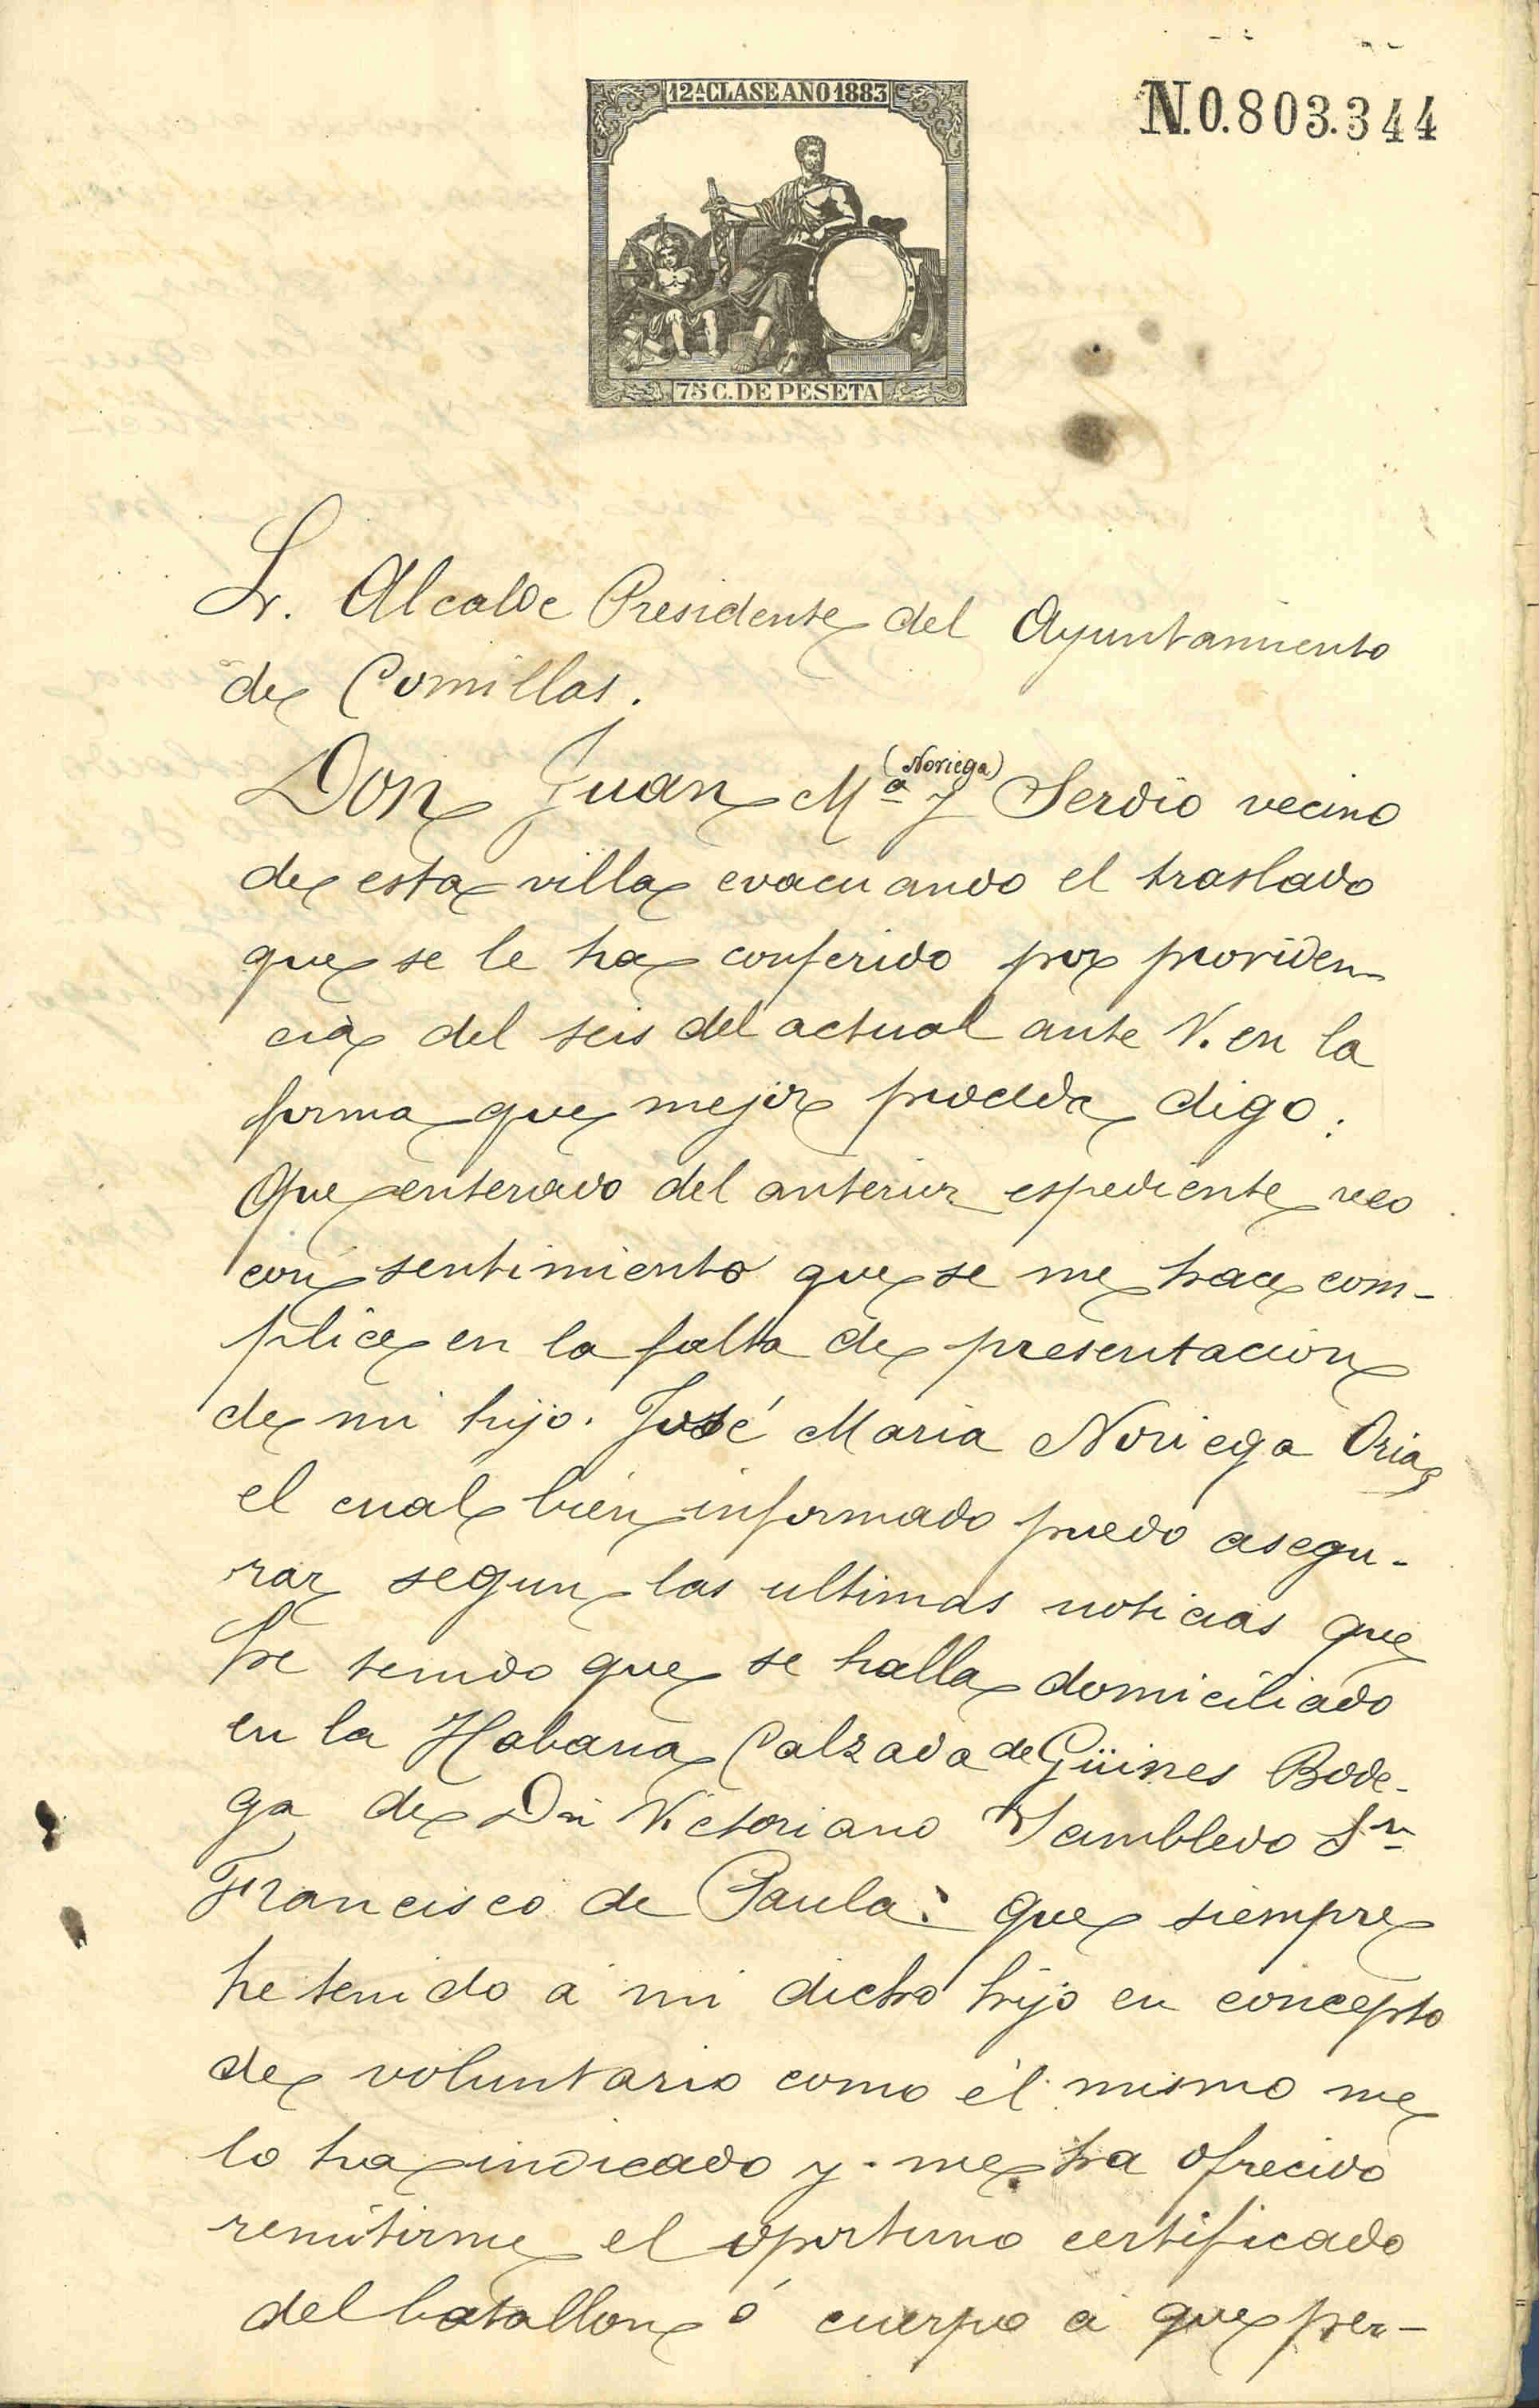 12ª CLASE AÑO 1883
N.0.803.344
75 C. DE PESETA
Sr. Alcalde Presidente del Ayuntamiento
de Comillas.
(Noriega)
Don Juan Mª y Serdio vecino
de esta villa evacuando el traslado
que se le ha conferido por providen-
cia del seis del actual ante V. en la
forma que mejor proceda digo:
Que enterado del anterior espediente veo
con sentimiento que se me hace com-
plice en la falta de presentacion
de mi hijo. José Maria Noriega Oria
el cual bien informado puedo asegu-
rar segun las ultimas noticias que
he tenido que se halla domiciliado
en la Habana Calzada de Güines Bode-
ga de Dn Victoriano Sn
Francisco de Paula: que siempre
he tenido á mi dicho hijo en concepto
de voluntario como él mismo me
lo ha indicado y me ha ofrecido
remitirme el oportuno certificado
del batallon ó cuerpo á que per-